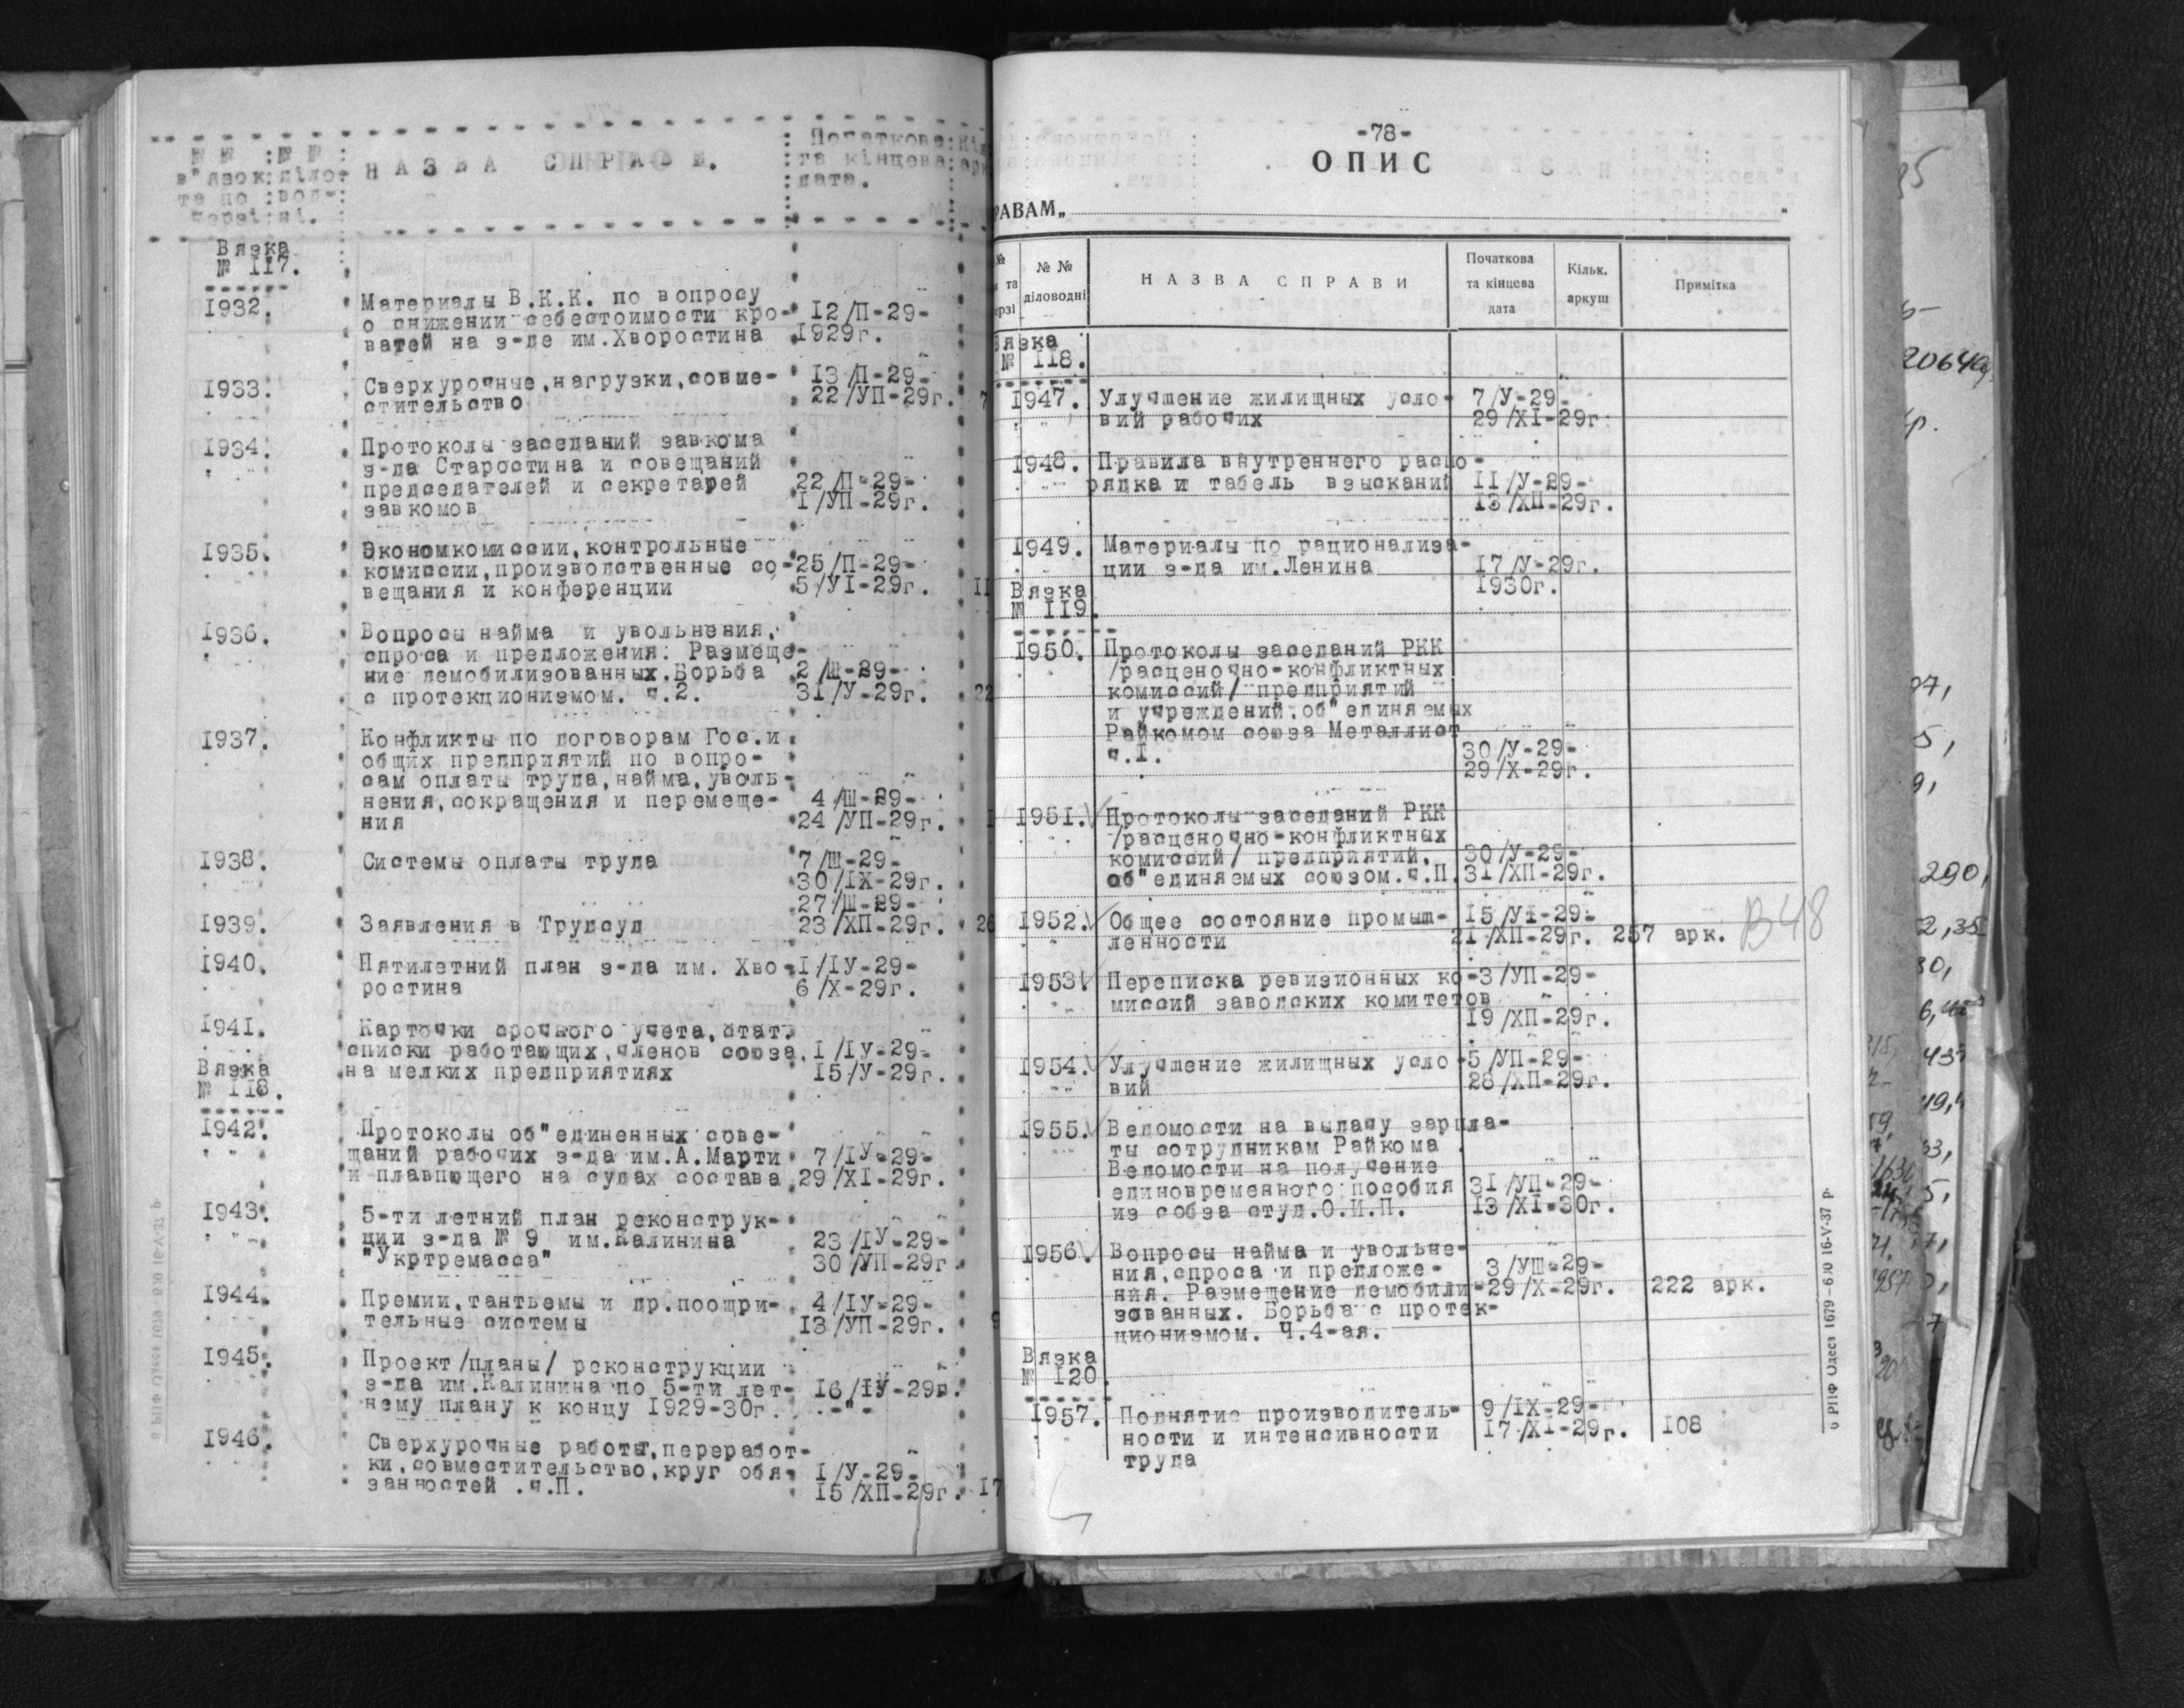 № № : № №
в"язок: діло-
та по : вод-
черзі: ні.
НАЗВА СПРАВИ.
Початкова
та кінцева
дата.
Вязка
№ 117.
1932.
Материалы В.К.К. по вопросу
о снижении себестоимости кро- 12/П-29-
ватей на з-де им.Хворостина 1929г.
1933. Сверхурочные,нагрузки,совме- 13/П-29-
стительство 22/УП-29г. 7
1934. Протоколы заседаний завкома
з-да Старостина и совещаний
председателей и секретарей 22/П-29-
завкомов 1/УП-29г.
1935. Экономкомиссии,контрольные
комиссии,производственные со- 25/П-29-
вещания и конференции 5/УІ-29г. 11
1936. Вопросы найма и увольнения,
спроса и предложения. Размеще-
ние демобилизованных.Борьба 2/Ш-29-
с протекционизмом. ч.2. 31/У-29г. 22
1937. Конфликты по договорам Гос.и
общих предприятий по вопро-
сам оплаты труда,найма,уволь-
нения,сокращения и перемеще- 4/Ш-29-
ния 24/УП-29г. 1
1938. Системы оплаты труда 7/Ш-29-
30/ІХ-29г.
27/Ш-29-
1939. Заявления в Трудсуд 23/ХП-29г. 26
1940. Пятилетний план з-да им. Хво- 1/ІУ-29-
ростина 6/Х-29г.
1941. Карточки срочного учета,стат.
списки работающих,членов союза, 1/ІУ-29-
на мелких предприятиях 15/У-29г.
Вязка
№ 118.
1942. Протоколы об"единенных сове-
щаний рабочих з-да им.А.Марти 7/ІУ-29-
и плавпющего на судах состава 29/ХІ-29г.
1943. 5-ти летний план реконструк-
ции з-да № 9 им.Калинина 23/ІУ-29-
"Укртремасса" 30/УП-29г.
1944. Премии,тантьемы и др.поощри- 4/ІУ-29-
тельные системы 13/УП-29г. 9
1945. Проект/планы/ реконструкции
з-да им.Калинина по 5-ти лет- 16/ІУ-29г.
нему плану к концу 1929-30г. -"-
1946. Сверхурочные работы,переработ-
ки,совместительство,круг обя- 1/У-29-
занностей .ч.П. 15/ХП-29г. 17
-78-
ОПИС
РАВАМ„
№ № № НАЗВА СПРАВИ Початкова та кінцева дата Кільк. аркуш Примітка
та діловодні
ерзі
Вязка
№ 118.
1947. Улучшение жилищных усло- 7/У-29-
вий рабочих 29/ХІ-29г.
1948. Правила внутреннего распо-
рядка и табель взысканий 11/У-29-
13/ХП-29г.
1949. Материалы по рационализа-
ции з-да им.Ленина 17/У-29г.
1930г.
Вязка
№ 119.
1950. Протоколы заседаний РКК
/расценочно-конфликтных
комиссий/ предприятий
и учреждений,об"единяемых
Райкомом союза Металлист
ч.І. 30/У-29-
29/Х-29г.
1951. Протоколы заседаний РКК
/расценочно-конфликтных
комиссий/ предприятий, 30/У-29-
об"единяемых союзом.ч.П. 31/ХП-29г.
1952. Общее состояние промыш- 15/УІ-29-
ленности 21/ХП-29г. 257 арк. В48
1953. Переписка ревизионных ко- 3/УП-29-
миссий заводских комитетов
19/ХП-29г.
1954. Улучшение жилищных усло- 5/УП-29-
вий 28/ХП-29г.
1955. Ведомости на выдачу зарпла-
ты сотрудникам Райкома
Ведомости на получение
единовременного пособия 31/УП-29-
из собза студ.О.И.П. 13/ХІ-30г.
1956. Вопросы найма и увольне-
ния,спроса и предложе- 3/УШ-29-
ния. Размещение демобили- 29/Х-29г. 222 арк.
зованных. Борьба с протек-
ционизмом. Ч.4-ая.
Вязка
№ 120.
1957. Поднятие производитель- 9/ІХ-29-
ности и интенсивности 17/ХІ-29г. 108
труда
6 РПФ Одеса 1679 – 600 16-V-37 р.
290,